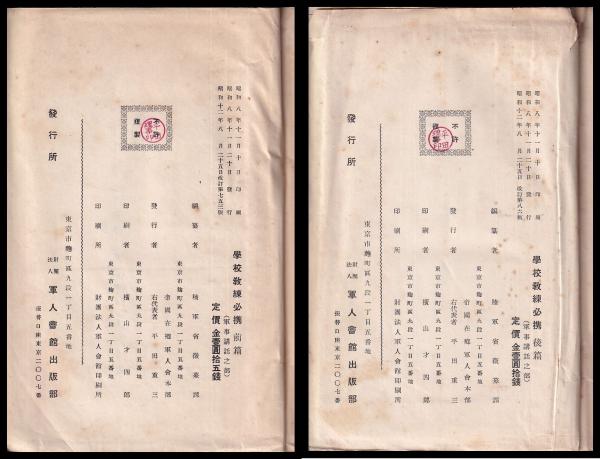 昭和八年十一月十日印刷
昭和八年十一月二十日發行
昭和十二年八月二十五日改訂第七五三版
不許
複製
學校敎練必携 前篇
(軍事講話之部)
定價 金壹圓拾五錢
編纂者 陸軍省徵募課
東京市麴町區九段一丁目五番地
發行者 帝國在鄕軍人會本部
右代表者 平田重三
東京市麴町區九段一丁目五番地
印刷者 濱山才四郞
東京市麴町區九段一丁目五番地
印刷所 財團法人軍人會館印刷所
發行所
東京市麴町區九段一丁目五番地
財團法人 軍人會館出版部
振替口座東京二〇〇七番
昭和八年十一月十日印刷
昭和八年十一月二十日發行
昭和十二年八月二十五日改訂第八六版
不許
複製
學校敎練必携 後篇
(軍事講話之部)
定價 金壹圓拾錢
編纂者 陸軍省徵募課
東京市麴町區九段一丁目五番地
發行者 帝國在鄕軍人會本部
右代表者 平田重三
東京市麴町區九段一丁目五番地
印刷者 濱山才四郞
東京市麴町區九段一丁目五番地
印刷所 財團法人軍人會館印刷所
發行所
東京市麴町區九段一丁目五番地
財團法人 軍人會館出版部
振替口座東京二〇〇七番